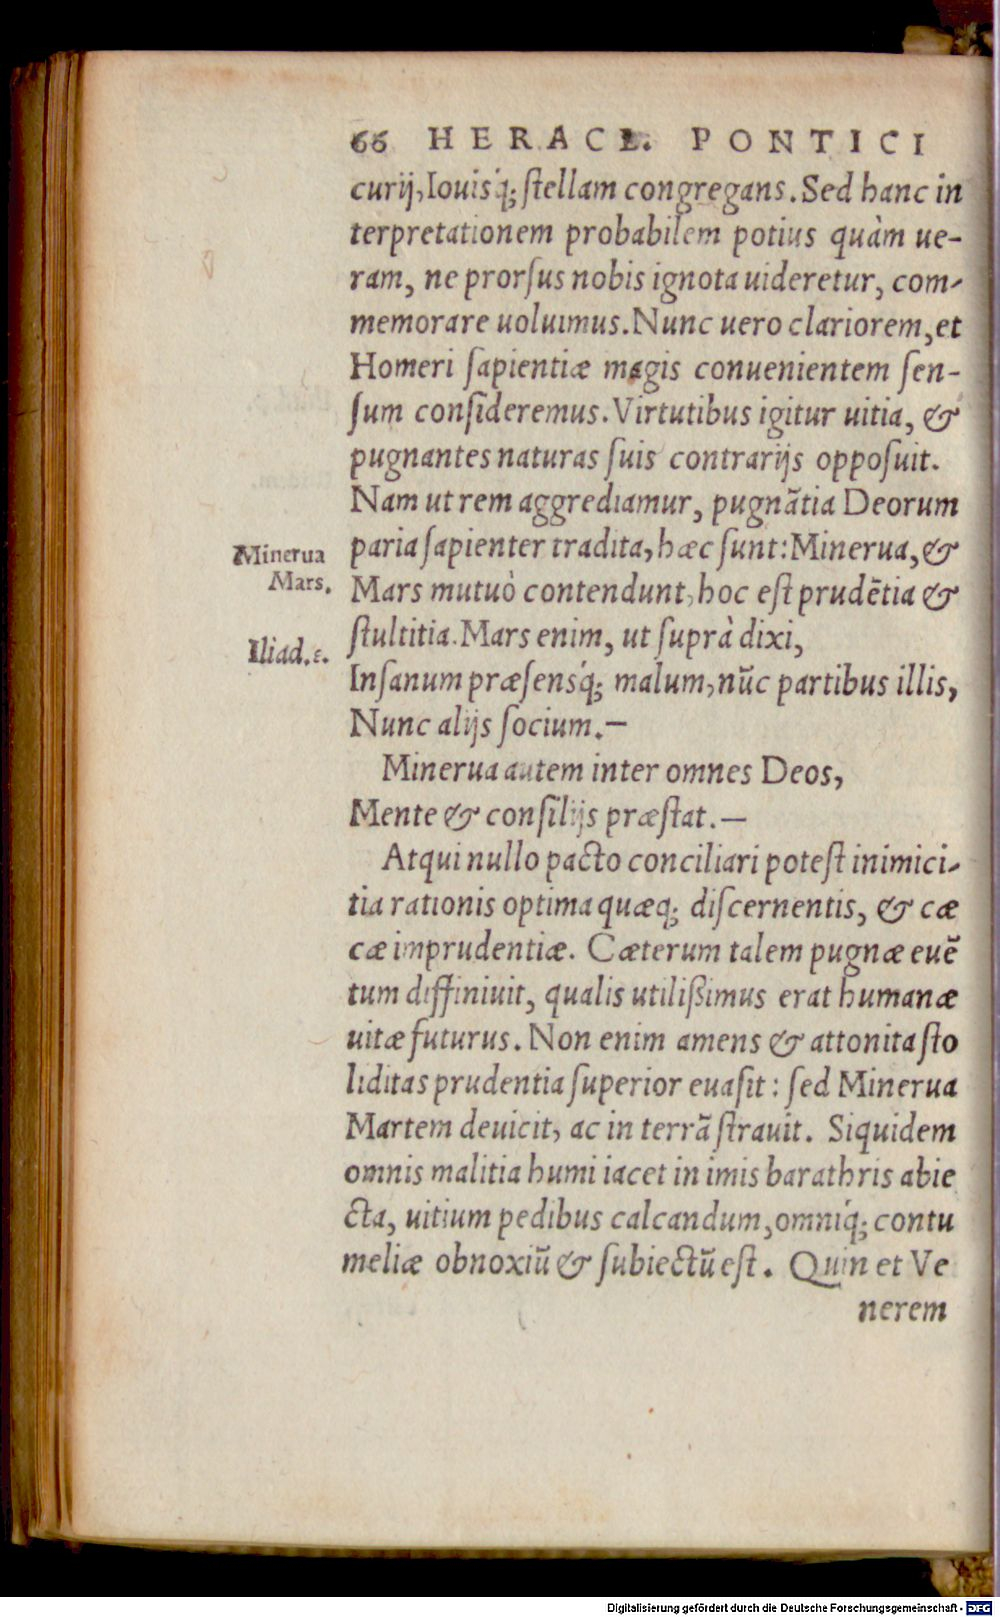 66 HERACL. PONTICI
curij, Iouisq́; ſtellam congregans. Sed hanc in
terpretationem probabilem potius quàm ue-
ram, ne prorſus nobis ignota uideretur, com-
memorare uoluimus. Nunc uero clariorem, et
Homeri ſapientiæ magis conuenientem ſen-
ſum conſideremus. Virtutibus igitur uitia, &
pugnantes naturas ſuis contrarijs oppoſuit.
Nam ut rem aggrediamur, pugnãtia Deorum
paria ſapienter tradita, hæc ſunt: Minerua, &
Minerua
Mars.
Mars mutuò contendunt, hoc eſt prudẽtia &
ſtultitia. Mars enim, ut ſuprà dixi,
Iliad. ε.
Inſanum præſensq́; malum, nũc partibus illis,
Nunc alijs ſocium.—
Minerua autem inter omnes Deos,
Mente & conſilijs præſtat.—
Atqui nullo pacto conciliari poteſt inimici-
tia rationis optima quæq; diſcernentis, & cæ
cæ imprudentiæ. Cæterum talem pugnæ euẽ
tum diffiniuit, qualis utiliſsimus erat humanæ
uitæ futurus. Non enim amens & attonita ſto
liditas prudentia ſuperior euaſit: ſed Minerua
Martem deuicit, ac in terrã ſtrauit. Siquidem
omnis malitia humi iacet in imis barathris abie
cta, uitium pedibus calcandum, omniq́; contu
meliæ obnoxiũ & ſubiectũ eſt. Quin et Ve
nerem
Digitalisierung gefördert durch die Deutsche Forschungsgemeinschaft - DFG